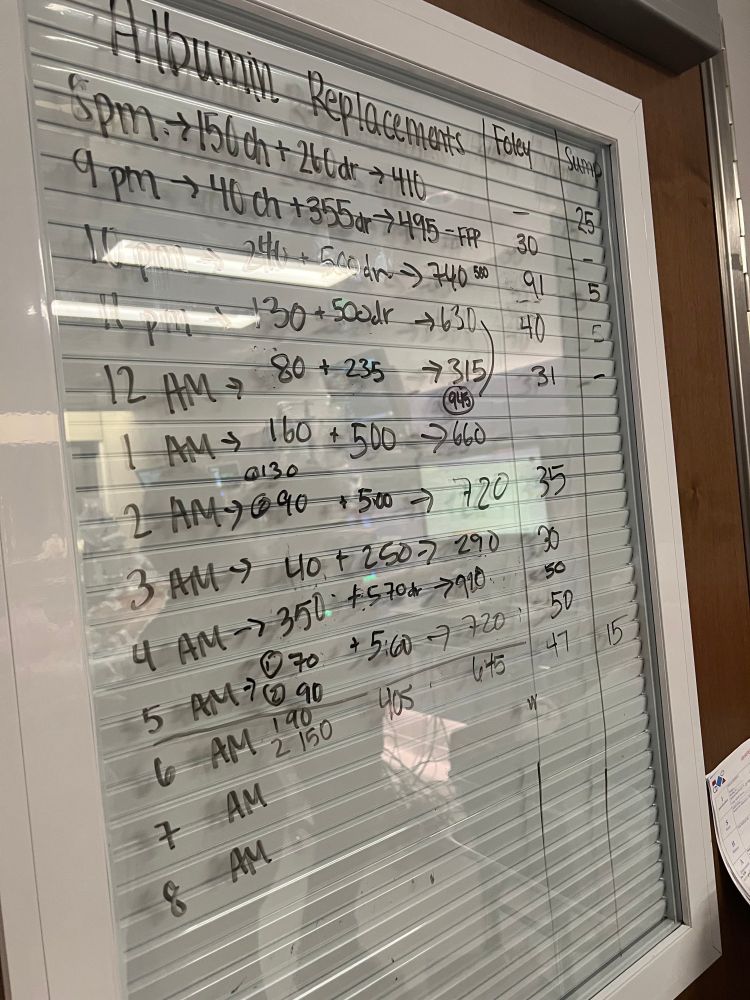 Albumin Replacements | Foley | Sump
8pm → 150ch + 260dr → 410 — 25
9pm → 40ch + 355dr → 495 - FFP 30 -
10 pm → 240 + 500dr → 740 500 91 5
11 pm → 130 + 500dr → 630 40 5
12 AM → 80 + 235 → 315 31 -
945
1 AM → 160 + 500 → 660
① 130
2 AM → ② 90 + 500 → 720 35
3 AM → 40 + 250 → 290 30
4 AM → 350 + 570dr → 920 50
① 70 + 560 → 720 50
5 AM → ② 90 47 15
6 AM 1 90 405 645
2 150
7 AM
8 AM